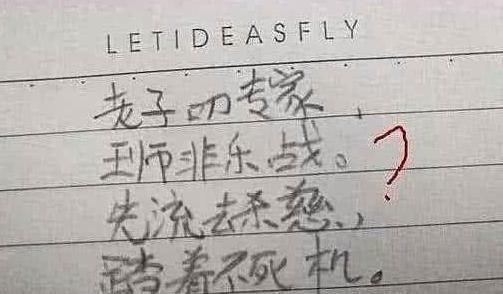 LETIDEASFLY
老子叨专家，
王师非乐战。
失流去杀慈，
踏着不死机。
?